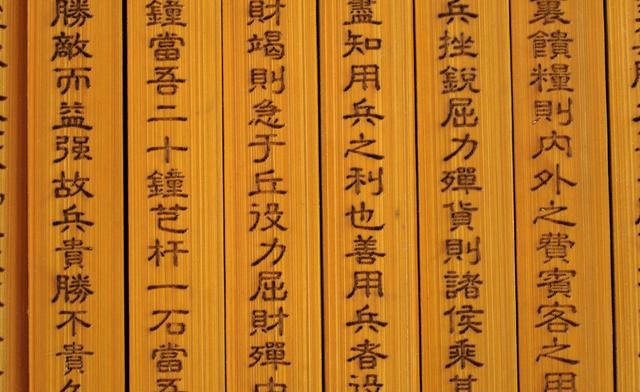 裏饋糧則內外之費賓客之用
兵挫銳屈力殫貨則諸侯乘其
盡知用兵之利也善用兵者役
財竭則急于丘役力屈財殫中
鐘當吾二十鐘芑杆一石當吾
勝敵而益强故兵貴勝不貴久